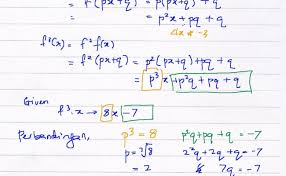 = f(px+q) = p(px+q) + q
= p²x + pq + q
f³(x) = f² f(x)
= f² (px+q) = p²(px+q) + pq + q
= p³x + p²q + pq + q
Given
f³: x → 8x - 7
Perbandingan, p³ = 8 p²q + pq + q = -7
p = ³√8 2²q + 2q + q = -7
= 2 7q = -7